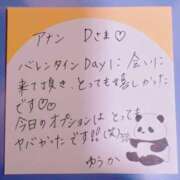 アナン Dさま♡
バレンタインDayに 会いに
来て頂き、とっても嬉しかった
です♡
今日のオプションは とっても
ヤバかったです!!(笑)
ゆうか